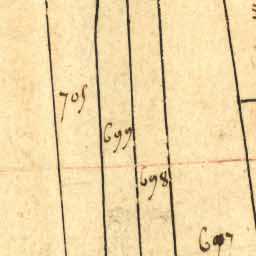 705
699
698
697